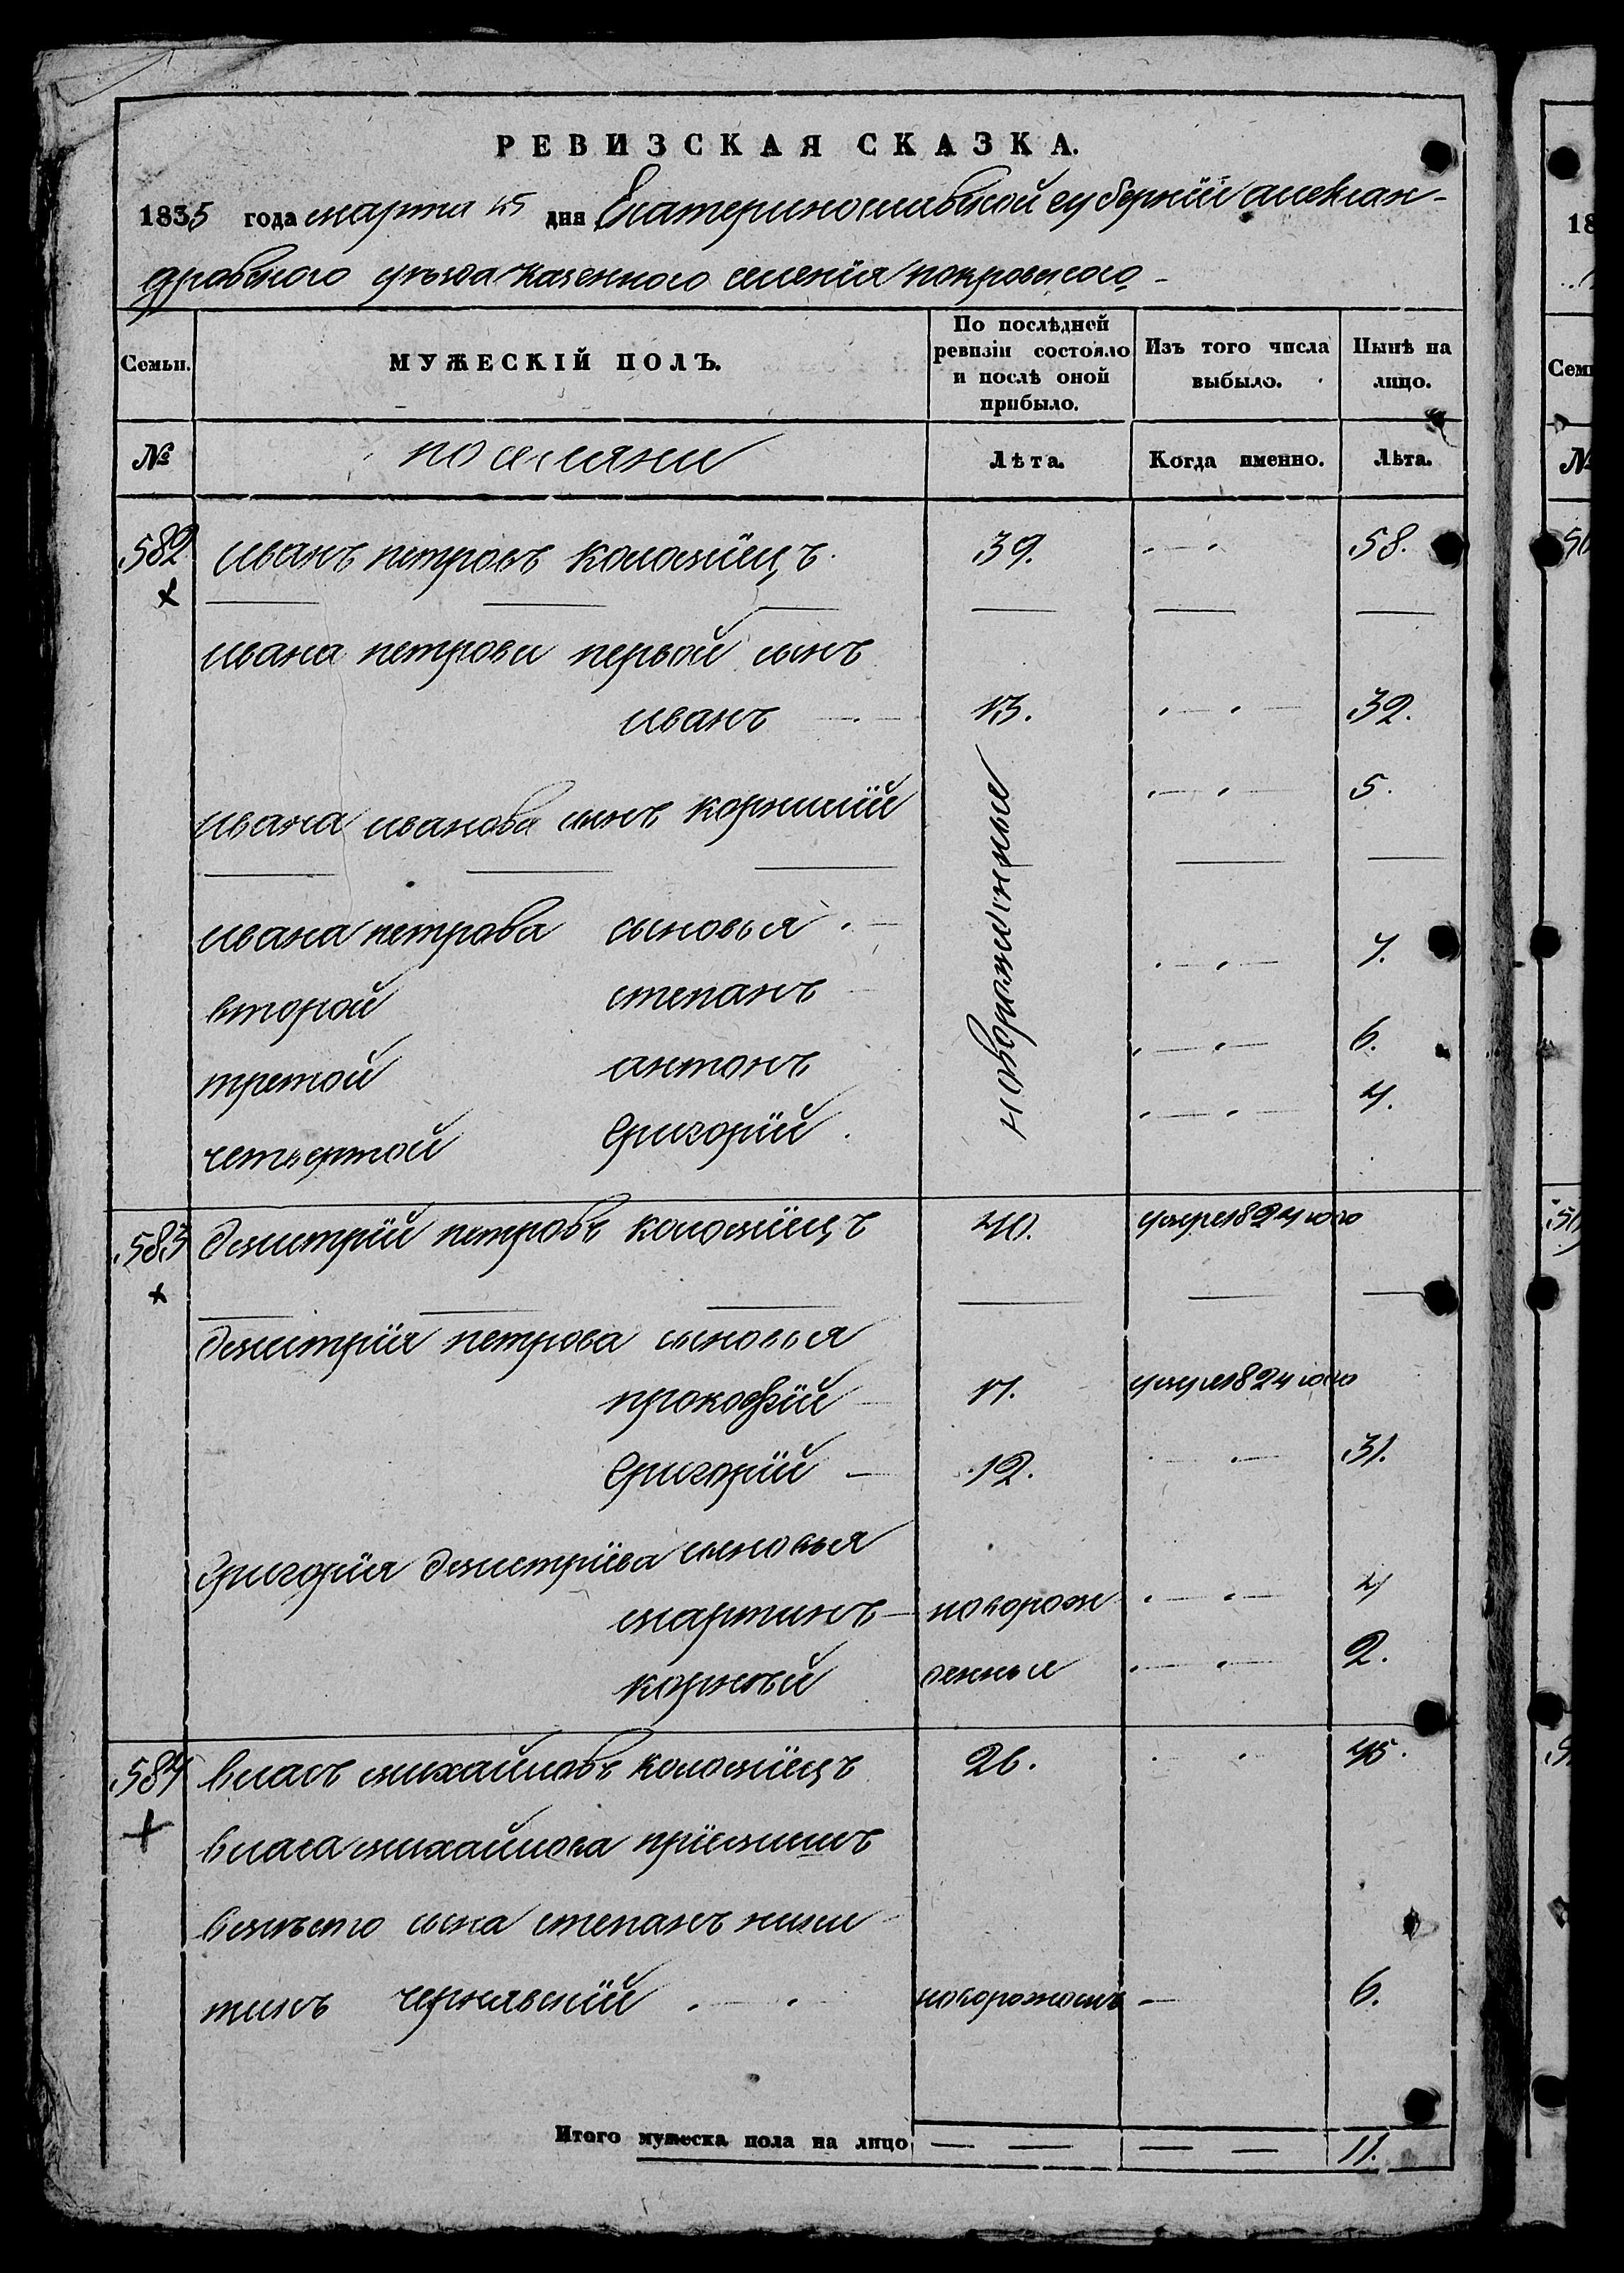 РЕВИЗСКАЯ СКАЗКА.
1835 года марта 15 дня Екатеринославской губернїи александ-
дровского уѣзда казенного селенїя покровского
Семьи. МУЖЕСКІЙ ПОЛЪ. По послѣдней ревизіи состояло и послѣ оной прибыло. Изъ того числа выбыло. Нынѣ на лицо.
№ поселяни Лѣта. Когда именно. Лѣта.
582 иванъ петровъ коломїецъ 39. 58.
ивана петрова первой сынъ
иванъ 13. 32.
ивана иванова сынъ корнилїй новорожденные 5.
ивана петрова сыновья
второй степанъ 7.
третой антонъ 6.
четвертой Григорїй 4.
583 дмитрїй петровъ коломїецъ 40. умре 1824 года
дмитрїя петрова сыновья
прокофїй 17. умре 1824 года
Григорїй 12. 31.
Григорїя дмитрїева сыновья
мартинъ новорож 4
корнѣй денные 2.
584 власъ михайловъ коломїецъ 26. 45.
власа михайлова прїемишъ
вмѣсто сына степанъ ники
тинъ чернявскїй новорожденъ 6.
Итого мужеска пола на лицо 11.